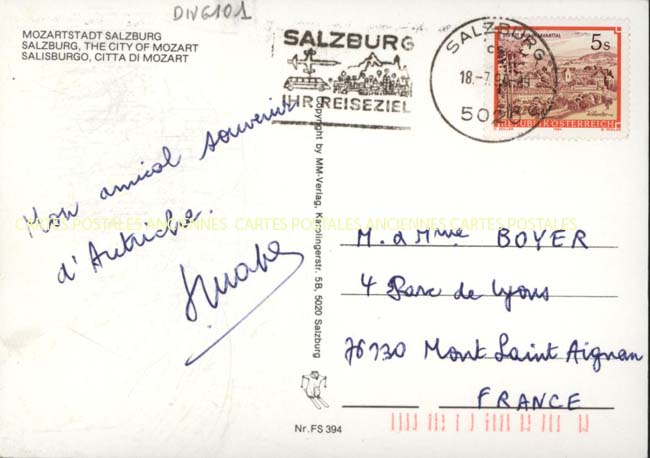 DIV6101
MOZARTSTADT SALZBURG
SALZBURG, THE CITY OF MOZART
SALISBURGO, CITTA DI MOZART
SALZBURG
IHR REISEZIEL
SALZBURG
18.-7.
502
5s
REPUBLIK ÖSTERREICH
Mon amical souvenir
d'Autriche.
CARTES POSTALES ANCIENNES CARTES POSTALES ANCIENNES CARTES POSTALES
Copyright by MM-Verlag, Karolingerstr. 5B, 5020 Salzburg
M. & Mme BOYER
4 Parc de Lyons
76130 Mont Saint Aignan
FRANCE
Nr. FS 394